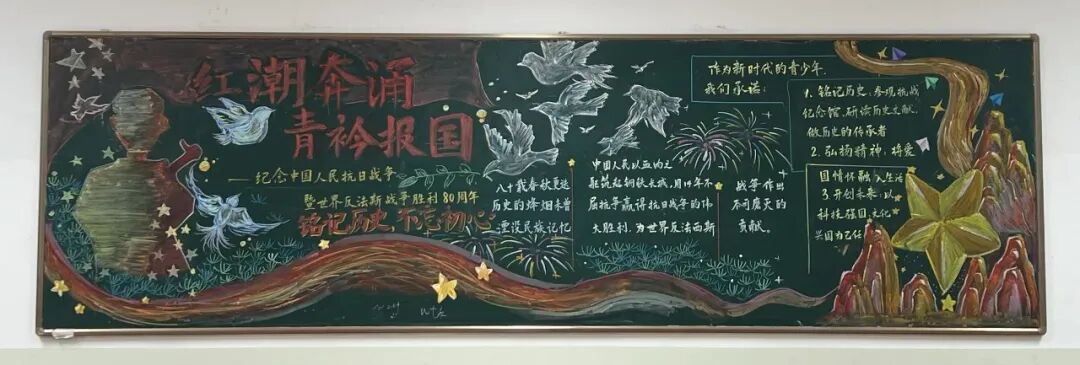 红潮奔涌
青衿报国
——纪念中国人民抗日战争
暨世界反法斯战争胜利80周年
铭记历史 不忘初心
八十载春秋更迭
历史的烽烟未曾
湮没民族记忆
中国人民以血肉之
躯筑起钢铁长城,用14年不
屈抗争赢得抗日战争的伟
大胜利,为世界反法西斯
战争作出
不可磨灭的
贡献。
作为新时代的青少年,
我们承诺:
1. 铭记历史,参观抗战
纪念馆,研读历史文献,
做历史的传承者
2. 弘扬精神,将爱
国情怀融入生活
3. 开创未来,以
科技强国,文化
兴国为己任